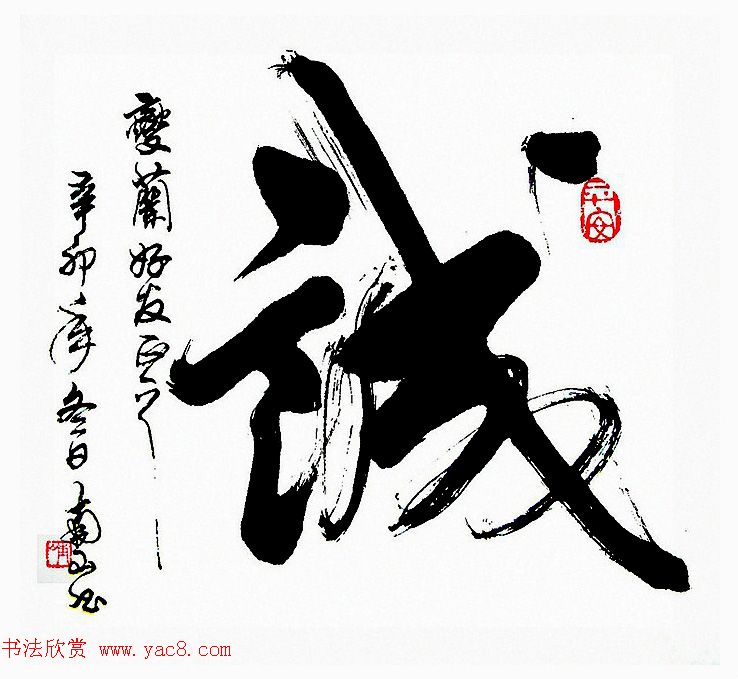 平安
诚
蘭好友正之
辛卯年冬日南山书
书法欣赏 www.yac8.com